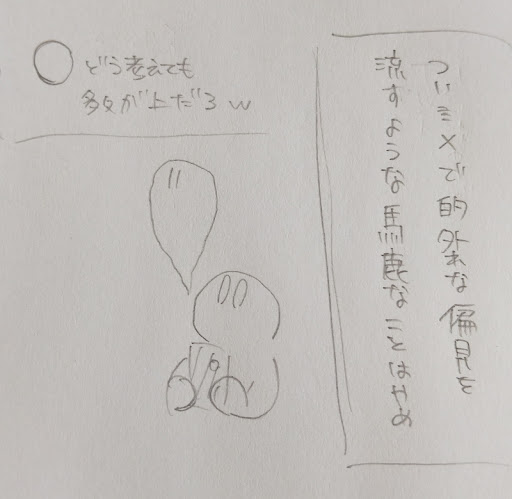 ついミXで的外れな偏見を
流すような馬鹿なことはやめ
どう考えても
が上だろw